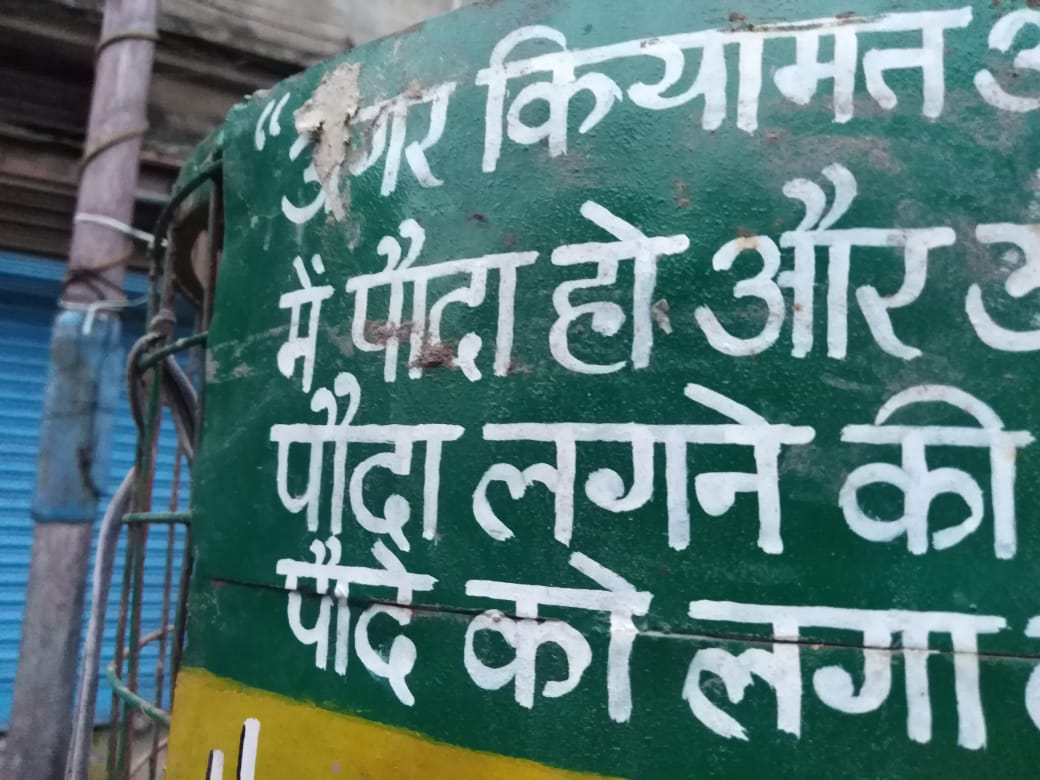 "अगर कियामत
में पौदा हो और
पौदा लगने की
पौदे को लगा